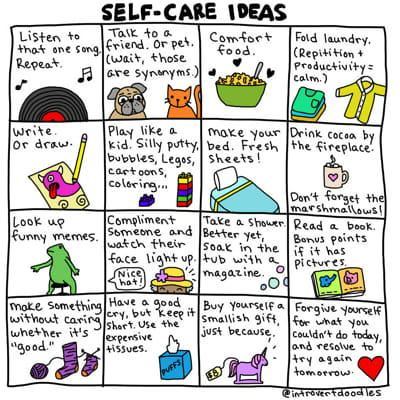 SELF-CARE IDEAS
Listen to
that one song.
Repeat.
Talk to a
friend. Or pet.
(Wait, those
are synonyms.)
Comfort
food.
Fold laundry.
(Repitition +
Productivity =
calm.)
Write.
Or draw.
Play like a
kid. Silly putty,
bubbles, Legos,
cartoons,
coloring...
make your
bed. Fresh
sheets!
Drink cocoa by
the fireplace.
Don't forget the
marshmallows!
Look up
funny memes.
Compliment
Someone and
watch their
face light up.
Nice
hat!
Take a shower.
Better yet,
soak in the
tub with a
magazine.
Read a book.
Bonus points
if it has
pictures.
make something
without caring
whether it's
"good."
Have a good
cry, but keep it
short. Use the
expensive
tissues.
PUFFS
Buy yourself a
smallish gift,
just because.
Forgive yourself
for what you
couldn't do today,
and resolve to
try again
tomorrow.
@introvertdoodles